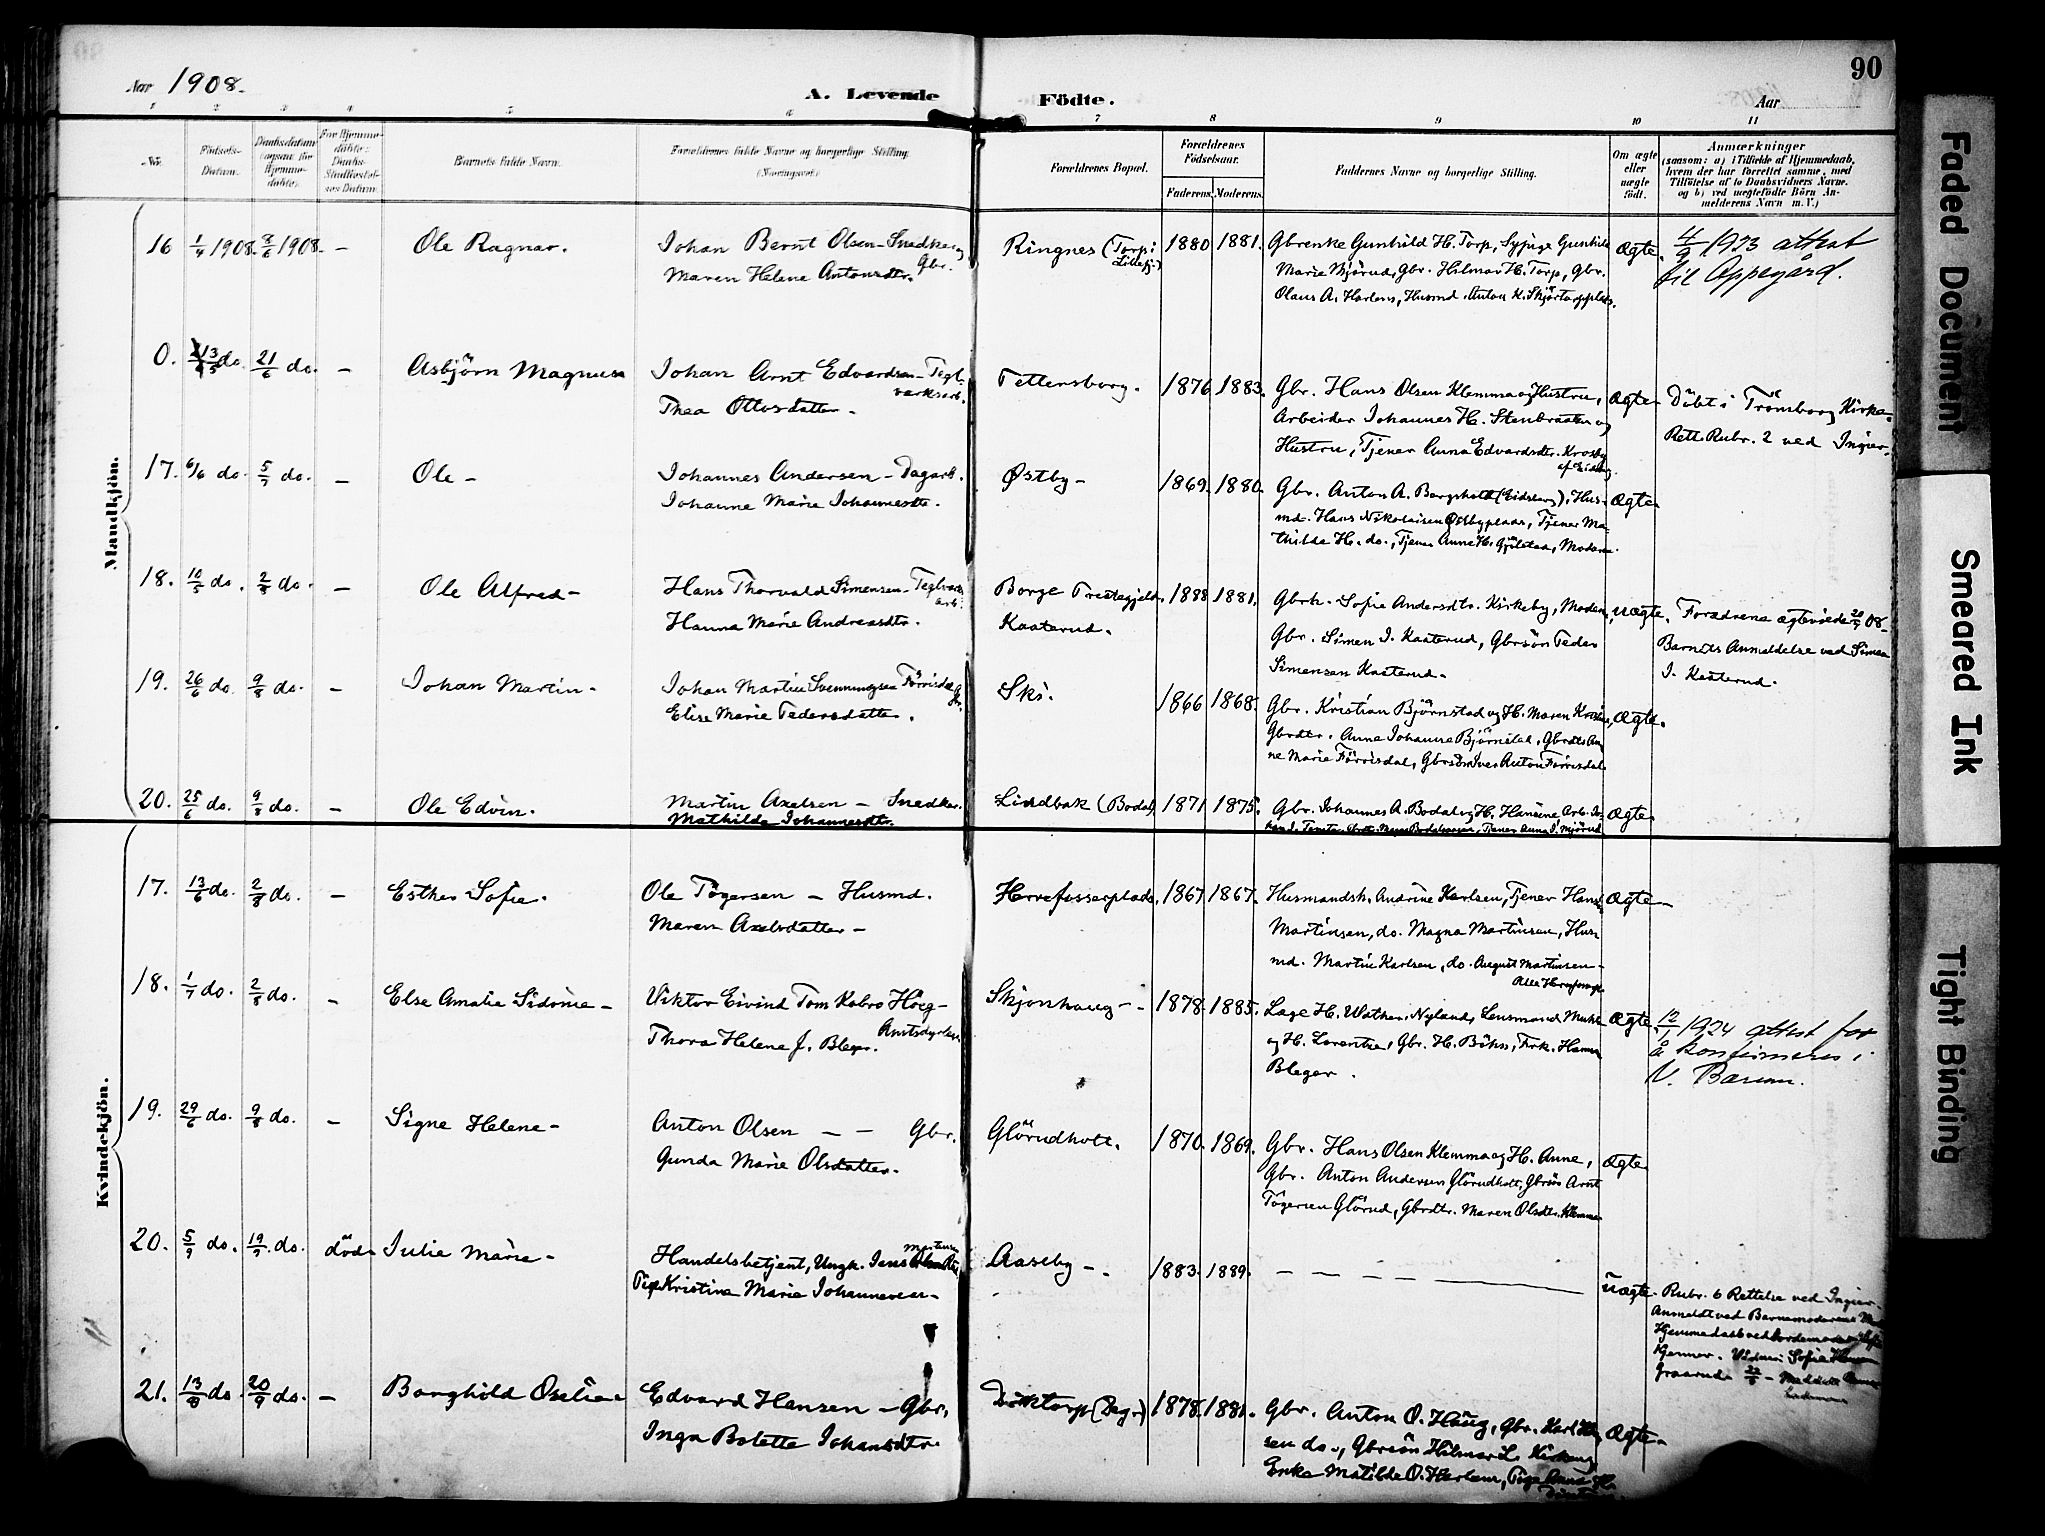 Aar 1908.
A. Levende
Födte.
Aar
90
1 2 3 4 5 6 7 8 9 10 11
Nr.
Födsels-Datum.
Daabsdatum (ogsaa for Hjemmedöbte).
For Hjemmedöbte: Daabs-Stadfæstelses Datum.
Barnets fulde Navn.
Forældrenes fulde Navne og borgerlige Stilling (Næringsvei).
Forældrenes Bopæl.
Forældrenes Födselsaar.
Faderens. Moderens.
Faddernes Navne og borgerlige Stilling.
Om ægte eller uægte födt.
Anmærkninger
(saasom: a) i Tilfælde af Hjemmedaab,
hvem der har forrettet samme, med
Tilföielse af to Daabsvidners Navne.
og b) ved uægtefödte Börn An-
melderens Navn m. V.)
Mandkjön.
16 1/4 1908. 8/6 1908. – Ole Ragnar.
Johan Bernt Olsen – Snedker og Gbr.
Maren Helene Antonsdtr.
Ringnes (Torp i
1880 1881.
Gbrenke Gunhild H. Torp, Sypige Gunhilda
Marie Mjörud, Gbr. Hilmar H. Torp, Gbr.
Olaus A. Harlem, Husmd. Anton K. Skjörtorpplads.
Ægte.
4/9 1923 attest
til Oppegård.
0. 13/5 do. 21/6 do. – Asbjörn Magnus
Johan Arnt Edvardsen – Tegl-
verksarb.
Thea Ottosdatter –
Tettersborg.
1876 1883.
Gbr. Hans Olsen Klemma og Hustru,
Arbeider Johannes H. Stenbraaten og
Hustru, Tjener Anna Edvardsdtr. Krosby
af Eidsberg
Ægte.
Döbt i Trömborg Kirke.
Rett. Rubr. 2 ved Ingier.
17. 6/6 do. 5/7 do. – Ole –
Johannes Andersen – Dagarb.
Johanne Marie Johannesdtr.
Østby –
1869. 1880.
Gbr. Anton A. Bergsholt (Eidsberg), Hus-
md. Hans Nikolaisen Østbyplads, Tjener Ma-
thilde H. do., Tjener Anne H. Gjölstad, Moderen.
Ægte.
18. 10/5 do. 2/8 do. – Ole Alfred –
Hans Thorvald Simensen – Teglverks
arb.
Hanna Marie Andreasdtr.
Borge Prestegjeld.
Kaaterud.
1888 1881.
Gbrk. Sofie Andersdtr. Kirkeby, Moderen,
Gbr. Simen I. Kaaterud, Gbrsön Peder
Simensen Kaaterud.
uægte.
Forældrene ægteviede 08.
Barnets Anmeldelse ved Simen
I. Kaaterud.
19. 26/6 do. 9/8 do. – Johan Martin –
Johan Martin Svenningsen Förrisdal
Elise Marie Pedersdatter.
Ski.
1866 1868.
Gbr. Kristian Björnstad og H. Maren Kristine,
Gbrdtr. Anne Johanne Björnstad, Gbrdtr. An-
ne Marie Förrisdal, Gbrsön Iver Anton Förrisdal
Ægte.
20. 25/6 do. 9/8 do. – Ole Edvin.
Martin Axelsen – Snedker.
Mathilde Johannesdtr.
Lindbak (Bodal)
1871 1875.
Gbr. Johannes A. Bodal og H. Hansine Arb. Jo-
Tjener Anna I. Mjörud
Ægte.
Kvindekjön.
17. 13/6 do. 2/8 do. – Esther Sofie.
Ole Tögersen – Husmd.
Maren Axelsdatter –
Herrefosserplads.
1867 1867.
Husmandsk. Andrine Karlsen, Tjener Hans
Martinsen, do. Magna Martinsen, Hus-
md. Martin Karlsen, do. August Martinsen –
Ægte –
18. 1/7 do. 2/8 do. – Else Amalie Sidonie –
Viktor Eivind Tom Kobro Höeg –
Amtsdyrlæge
Thora Helene f. Bleger.
Skjönhaug –
1878. 1885.
Læge H. Wather Nyland, Lensmand Muhle
og H. Lorentze, Gbr. H. Böhss, Frk. Hanna
Bleger.
Ægte
12/1 1924 attest for
å konfirmeres i
V. Bærum.
19. 29/6 do. 9/8 do. – Signe Helene –
Anton Olsen – – Gbr.
Gunda Marie Olsdatter.
Glörudholt.
1870. 1869.
Gbr. Hans Olsen Klemma og H. Anne,
Gbr. Anton Andersen Glörudholt, Gbrsön Arnt
Tögersen Glörud, Gbrdtr. Maren Olsdtr. Klemma
Ægte
20. 5/9 do. 19/9 do. död Julie Marie –
Handelsbetjent, Ungk. Jens
Martinsen
Pige Kristine Marie Johannesen –
Aaseby –
1883. 1889.
– – – –
Uægte.
Rubr. 6 Rettelse ved Ingier.
Anmeldt ved Barnemoderens
Hjemmedaab ved Jordemoder
Kjenner. Vidner: Sofie Hansen
Graarud
21. 13/8 do. 20/9 do. – Borghild Oselie
Edvard Hansen – Gbr.
Inga Bolette Johansdtr.
1878. 1881.
Gbr. Anton O. Haug, Gbr. Karl Han-
sen do., Gbrsön Hilmar L. Kirkeng
Enke Matilde O. Harlem, Pige Anna
Ægte –
Faded Document
Smeared Ink
Tight Binding